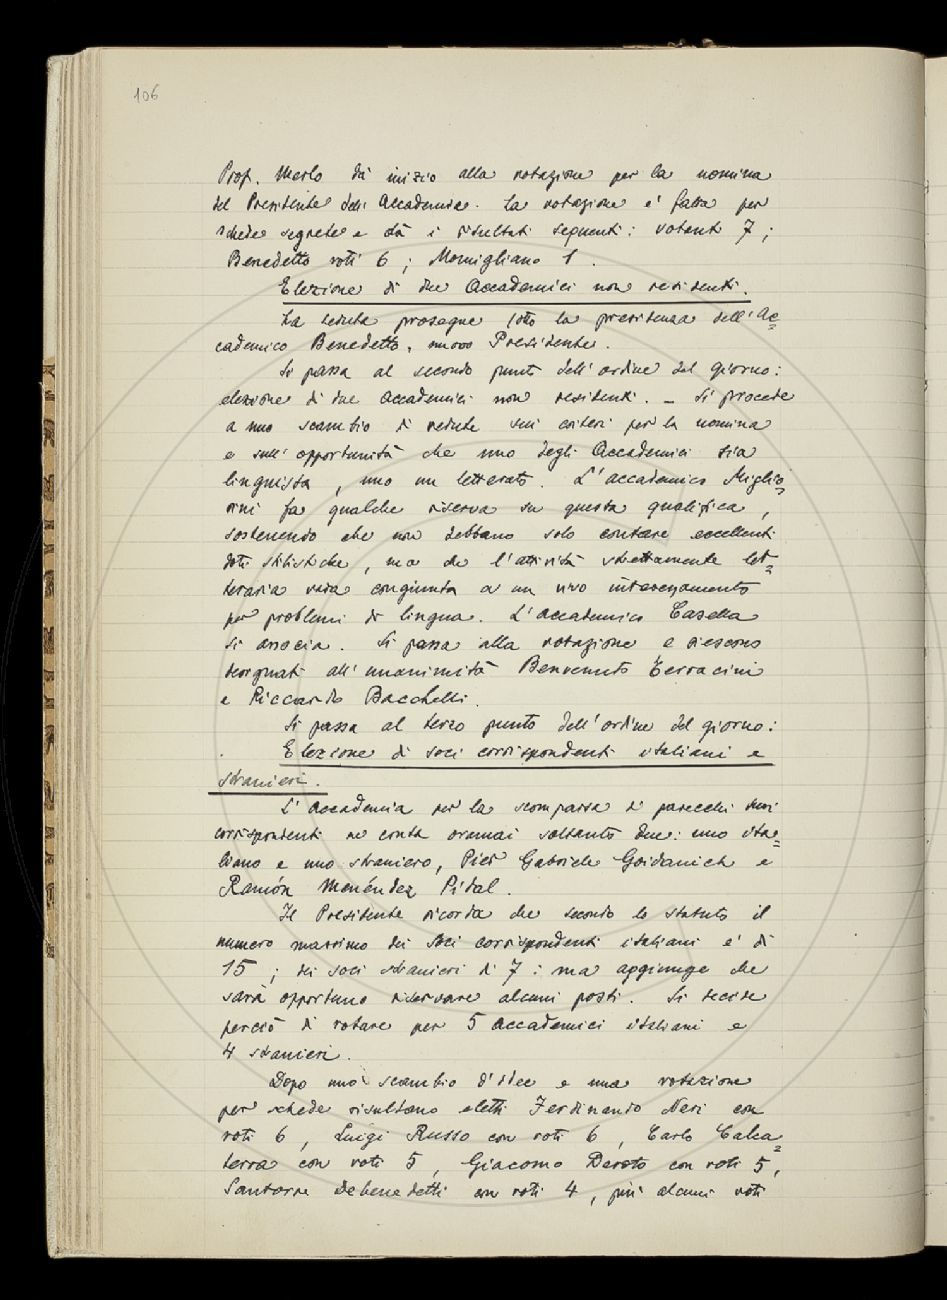 106
Prof. Merlo dà inizio alla votazione per la nomina
del Presidente dell'Accademia. La votazione è fatta per
schede segrete e dà i risultati seguenti: votanti 7;
Benedetto voti 6; Momigliano 1.
Elezione di due Accademici non residenti.
La seduta prosegue sotto la presidenza dell'Ac=
cademico Benedetto, nuovo Presidente.
Si passa al secondo punto dell'ordine del giorno:
elezione di due accademici non residenti. – Si procede
a uno scambio di vedute sui criteri per la nomina
e sull'opportunità che uno degli Accademici sia
linguista, uno un letterato. L'accademico Miglio=
rini fa qualche riserva su questa qualifica,
sostenendo che non debbano solo contare eccellenti
doti stilistiche, ma che l'attività strettamente let=
teraria vada congiunta a un vivo interessamento
per problemi di lingua. L'accademico Casella
si associa. Si passa alla votazione e riescono
designati all'unanimità Benvenuto Terracini
e Riccardo Bacchelli.
Si passa al terzo punto dell'ordine del giorno:
Elezione di soci corrispondenti italiani e
stranieri.
L'Accademia per la scomparsa di parecchi suoi
corrispondenti ne conta oramai soltanto due: uno ita=
liano e uno straniero, Pier Gabriele Goidanich e
Ramón Menéndez Pidal.
Il Presidente ricorda che secondo lo statuto il
numero massimo dei Soci corrispondenti italiani è di
15; dei soci stranieri di 7: ma aggiunge che
sarà opportuno riservare alcuni posti. Si decide
perciò di votare per 5 accademici italiani e
4 stranieri.
Dopo uno scambio d'idee e una votazione
per schede risultano eletti Ferdinando Neri con
voti 6, Luigi Russo con voti 6, Carlo Calca=
terra con voti 5, Giacomo Devoto con voti 5,
Santorre Debenedetti con voti 4, più alcuni voti